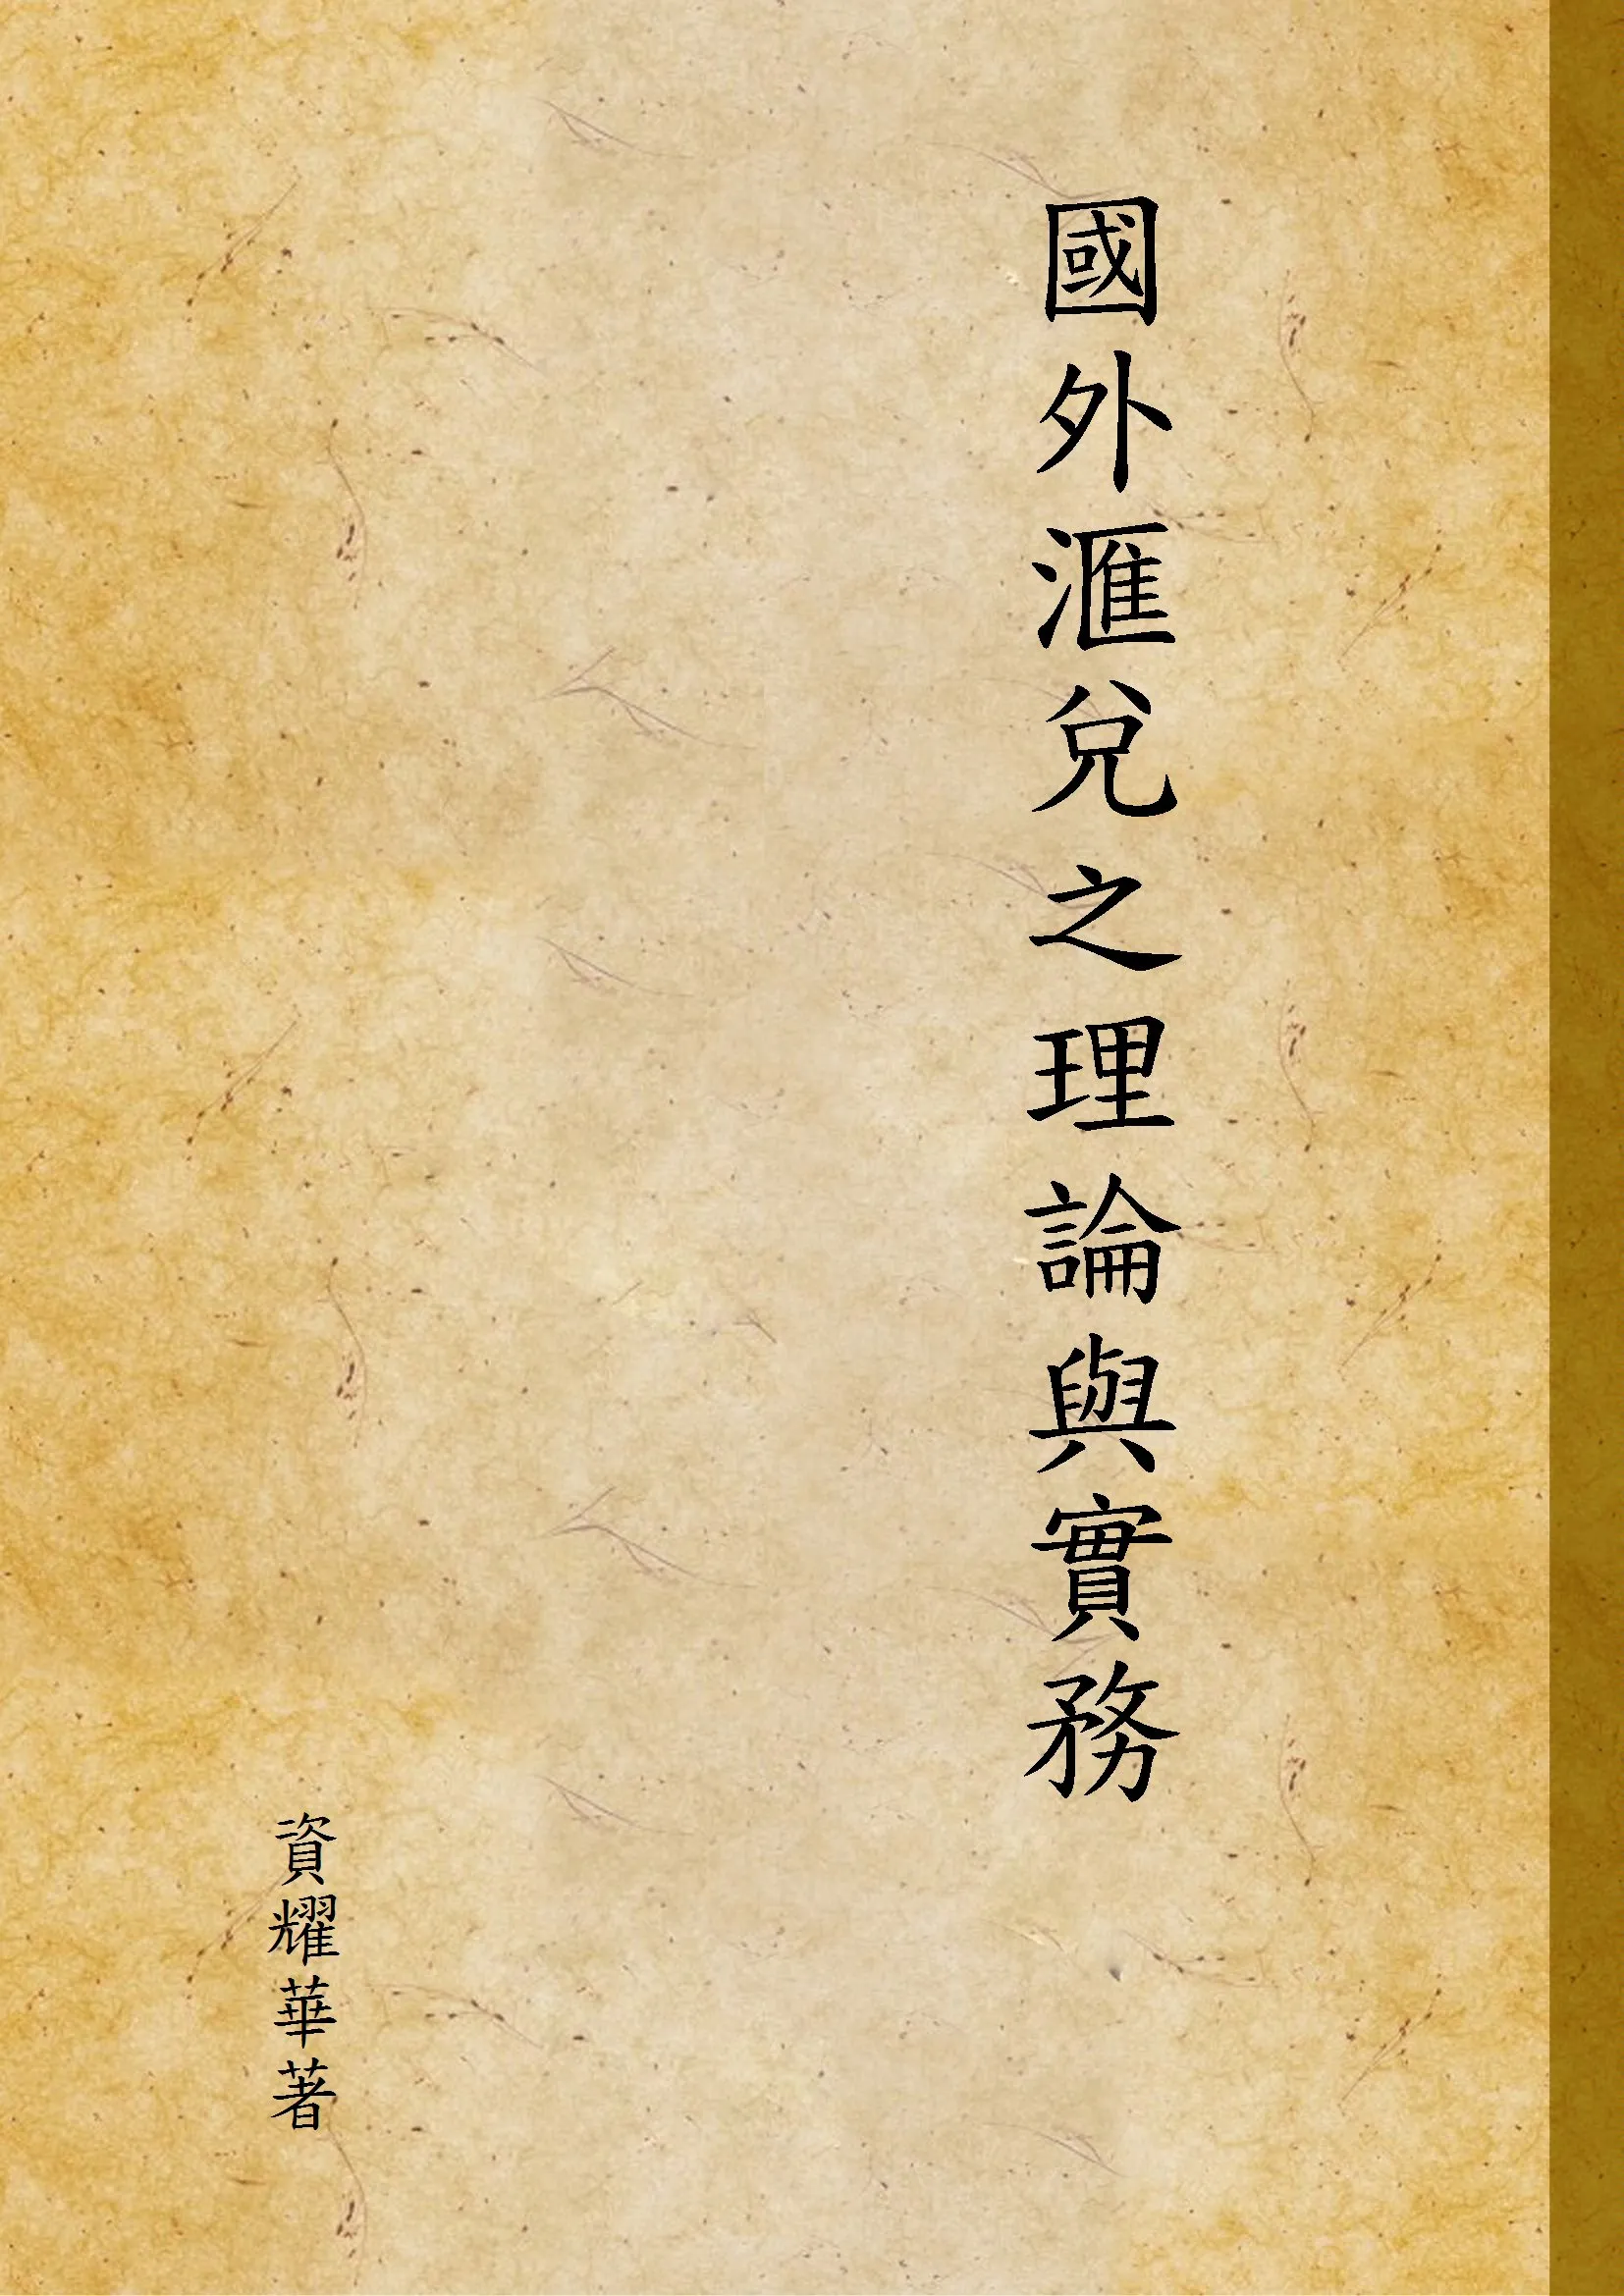 國外滙兌之理論與實務
資耀華著